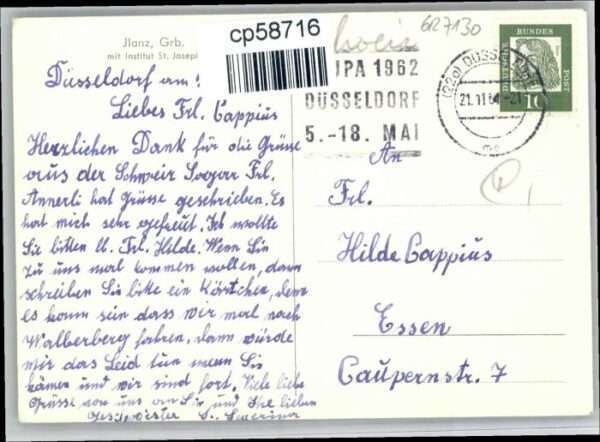 cp58716
627130
Jlanz, Grb.
mit Institut St. Josepf
Düsseldorf am!
Liebes Frl. Cappius
Herzlichen Dank für die Grüsse
aus der Schweiz Sogar Frl.
Annerli hat Grüsse geschrieben. Es
hat mich sehr gefreut. Ich wollte
Sie bitten ll. Frl. Hilde. Wenn Sie
zu uns mal kommen wollen, dann
schreiben Sie bitte ein Kärtchen, denn
es kann sein dass wir mal nach
Walberberg fahren, dann würde
mir das Leid tun wenn Sie
kämen und wir sind fort. Viele liebe
Grüsse von uns an Sie und Ihre lieben
Geschwister S. Severina
UPA 1962
DÜSSELDORF
5.-18. MAI
(22a) DÜSSELDORF
21.11.61-21
mc
DEUTSCHE
BUNDES
POST
10
An
Frl.
Hilde Cappius
Essen
Caupernstr. 7